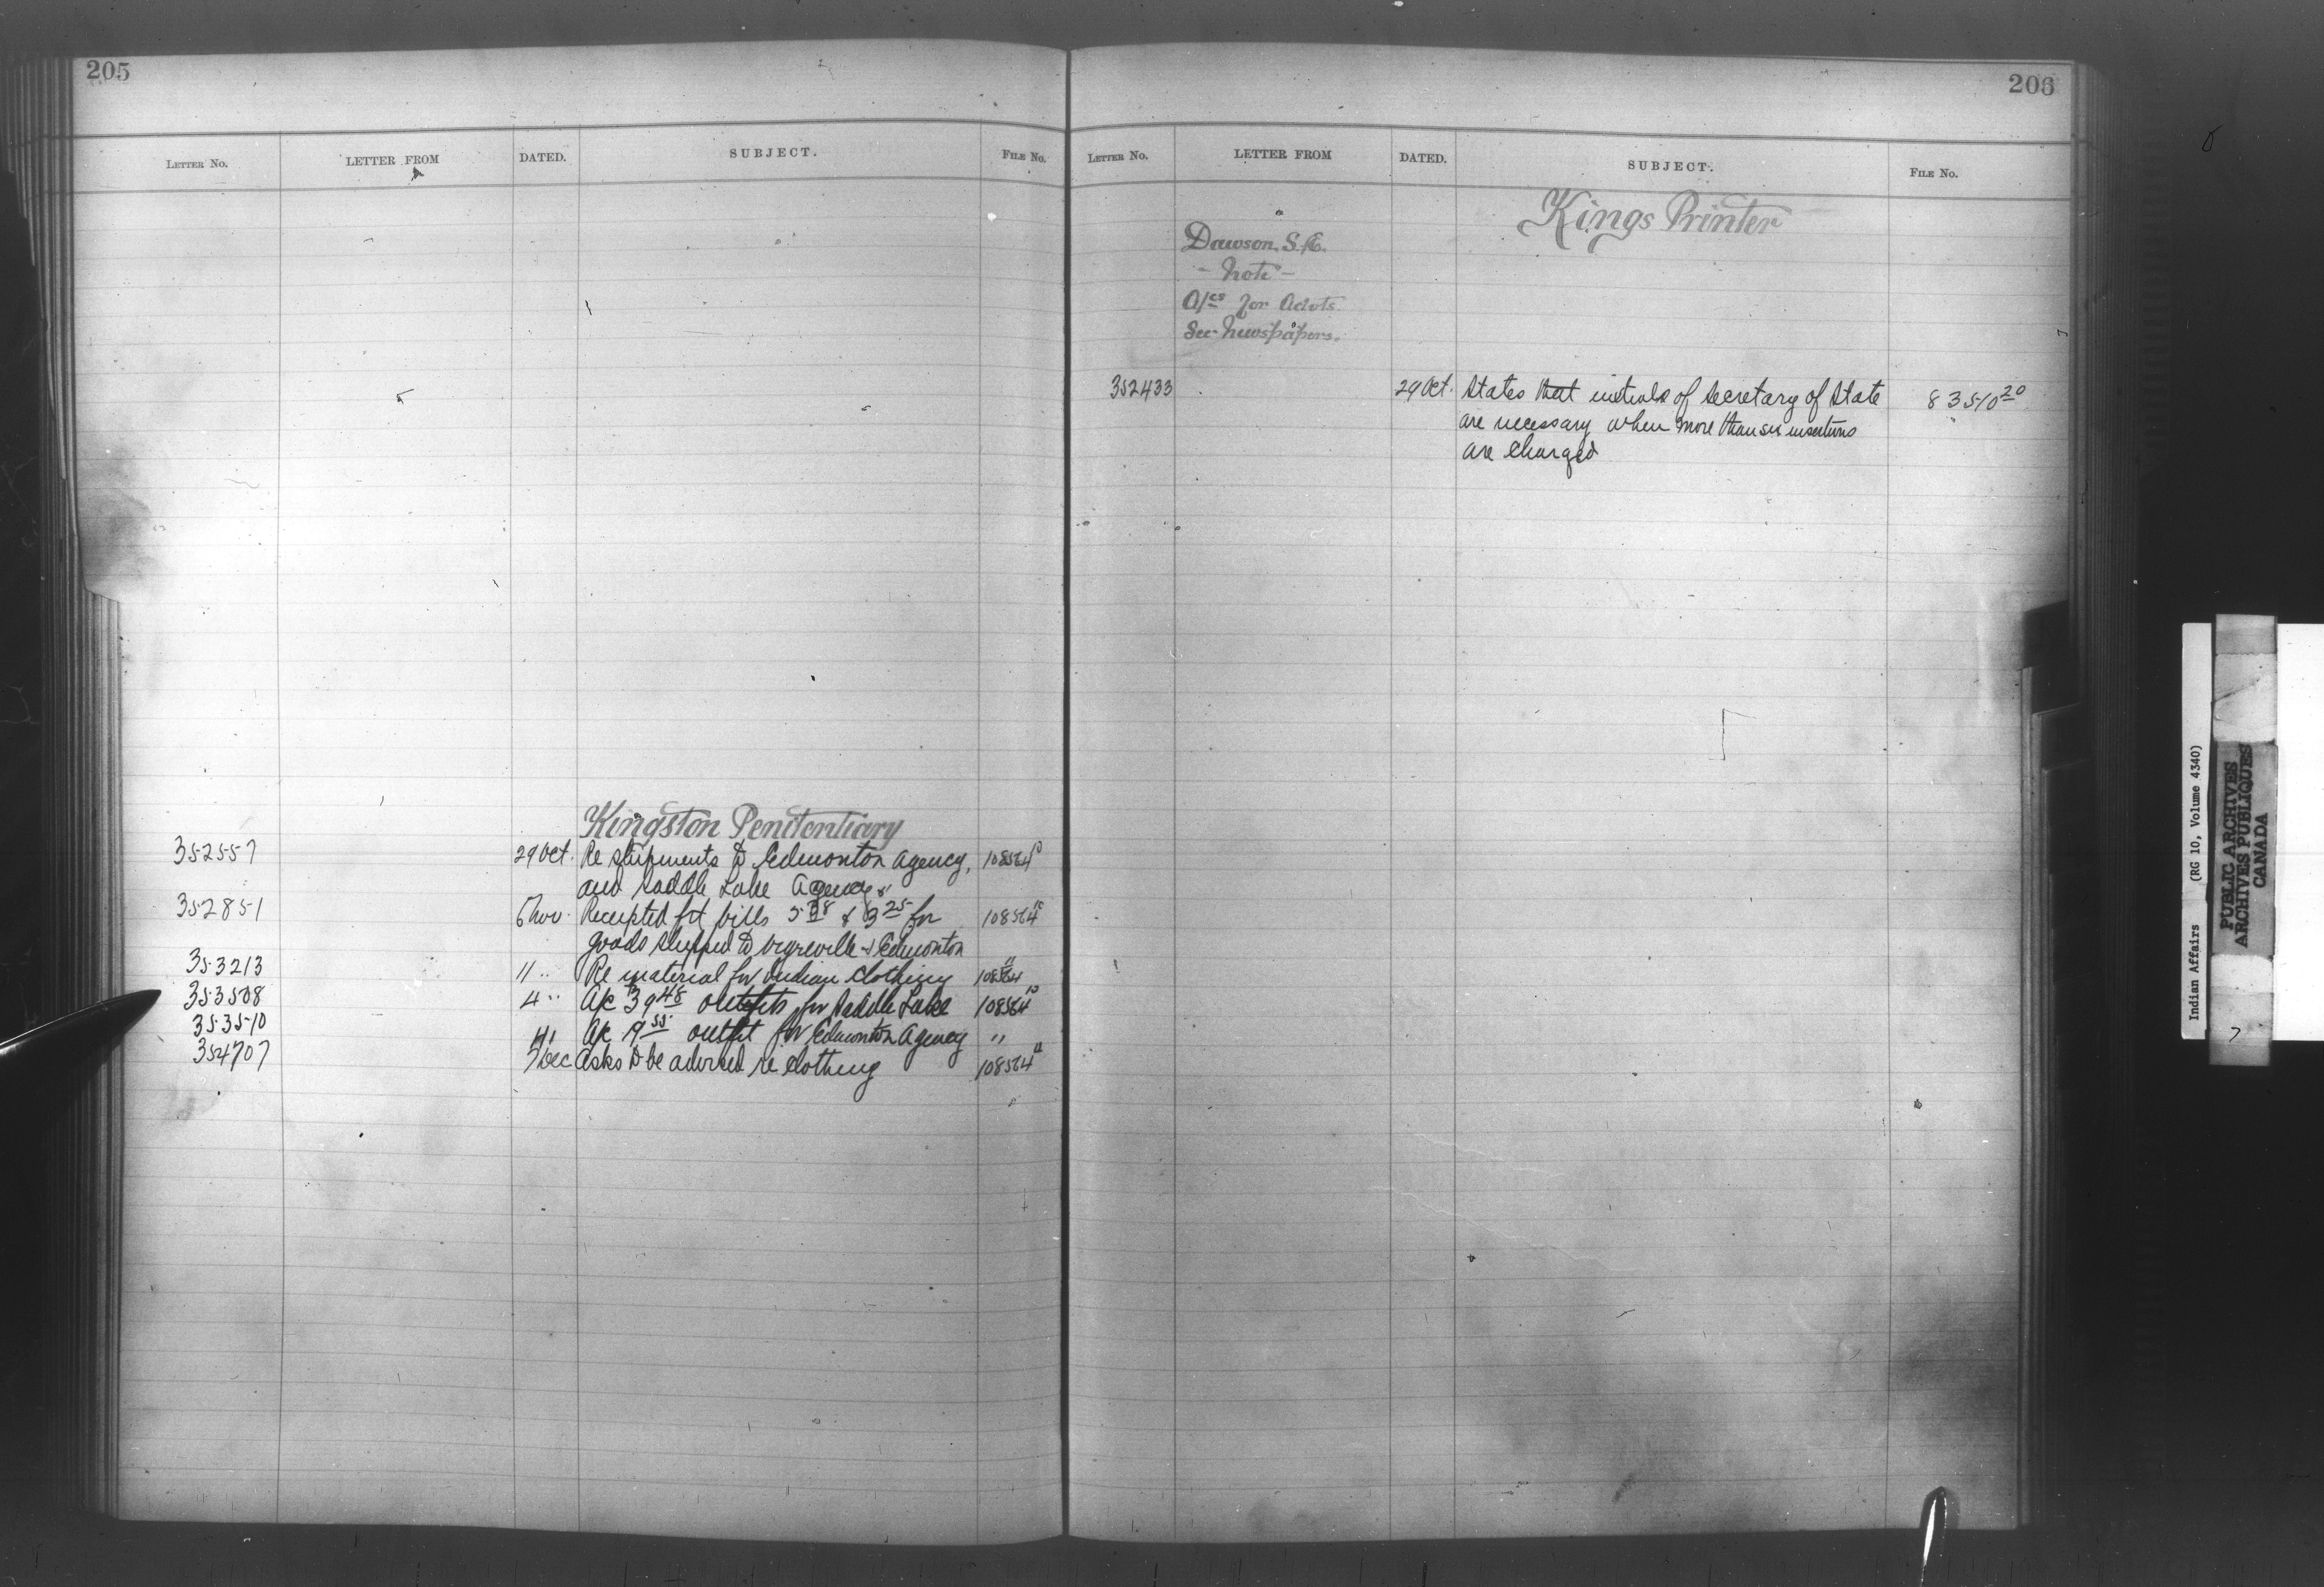 205
LETTER No. LETTER FROM DATED. SUBJECT. FILE No.
Kingston Penitentiary
352557 29 Oct. Re shipments to Edmonton Agency, 108564
and Saddle Lake Agency
352851 6 Nov. Receipted frt bills 5 38 & 3 25 for 108564
goods shipped to Vegreville & Edmonton
353213 11 " Re material for Indian clothing 108564 11
353508 4 " A/c 39 48 outfits for Saddle Lake 108564 10
353510 A/c 19 55 outfit for Edmonton Agency "
354707 7 Dec Asks to be advised re clothing 108564 11
206
LETTER No. LETTER FROM DATED. SUBJECT. FILE No.
Kings Printer
Dawson, S.E.
- Note -
A/cs for Advts.
See Newspapers.
352433 29 Oct. States that initials of Secretary of State 83510 20
are necessary when more than six insertions
are charged
Indian Affairs (RG 10, Volume 4340)
PUBLIC ARCHIVES
ARCHIVES PUBLIQUES
CANADA